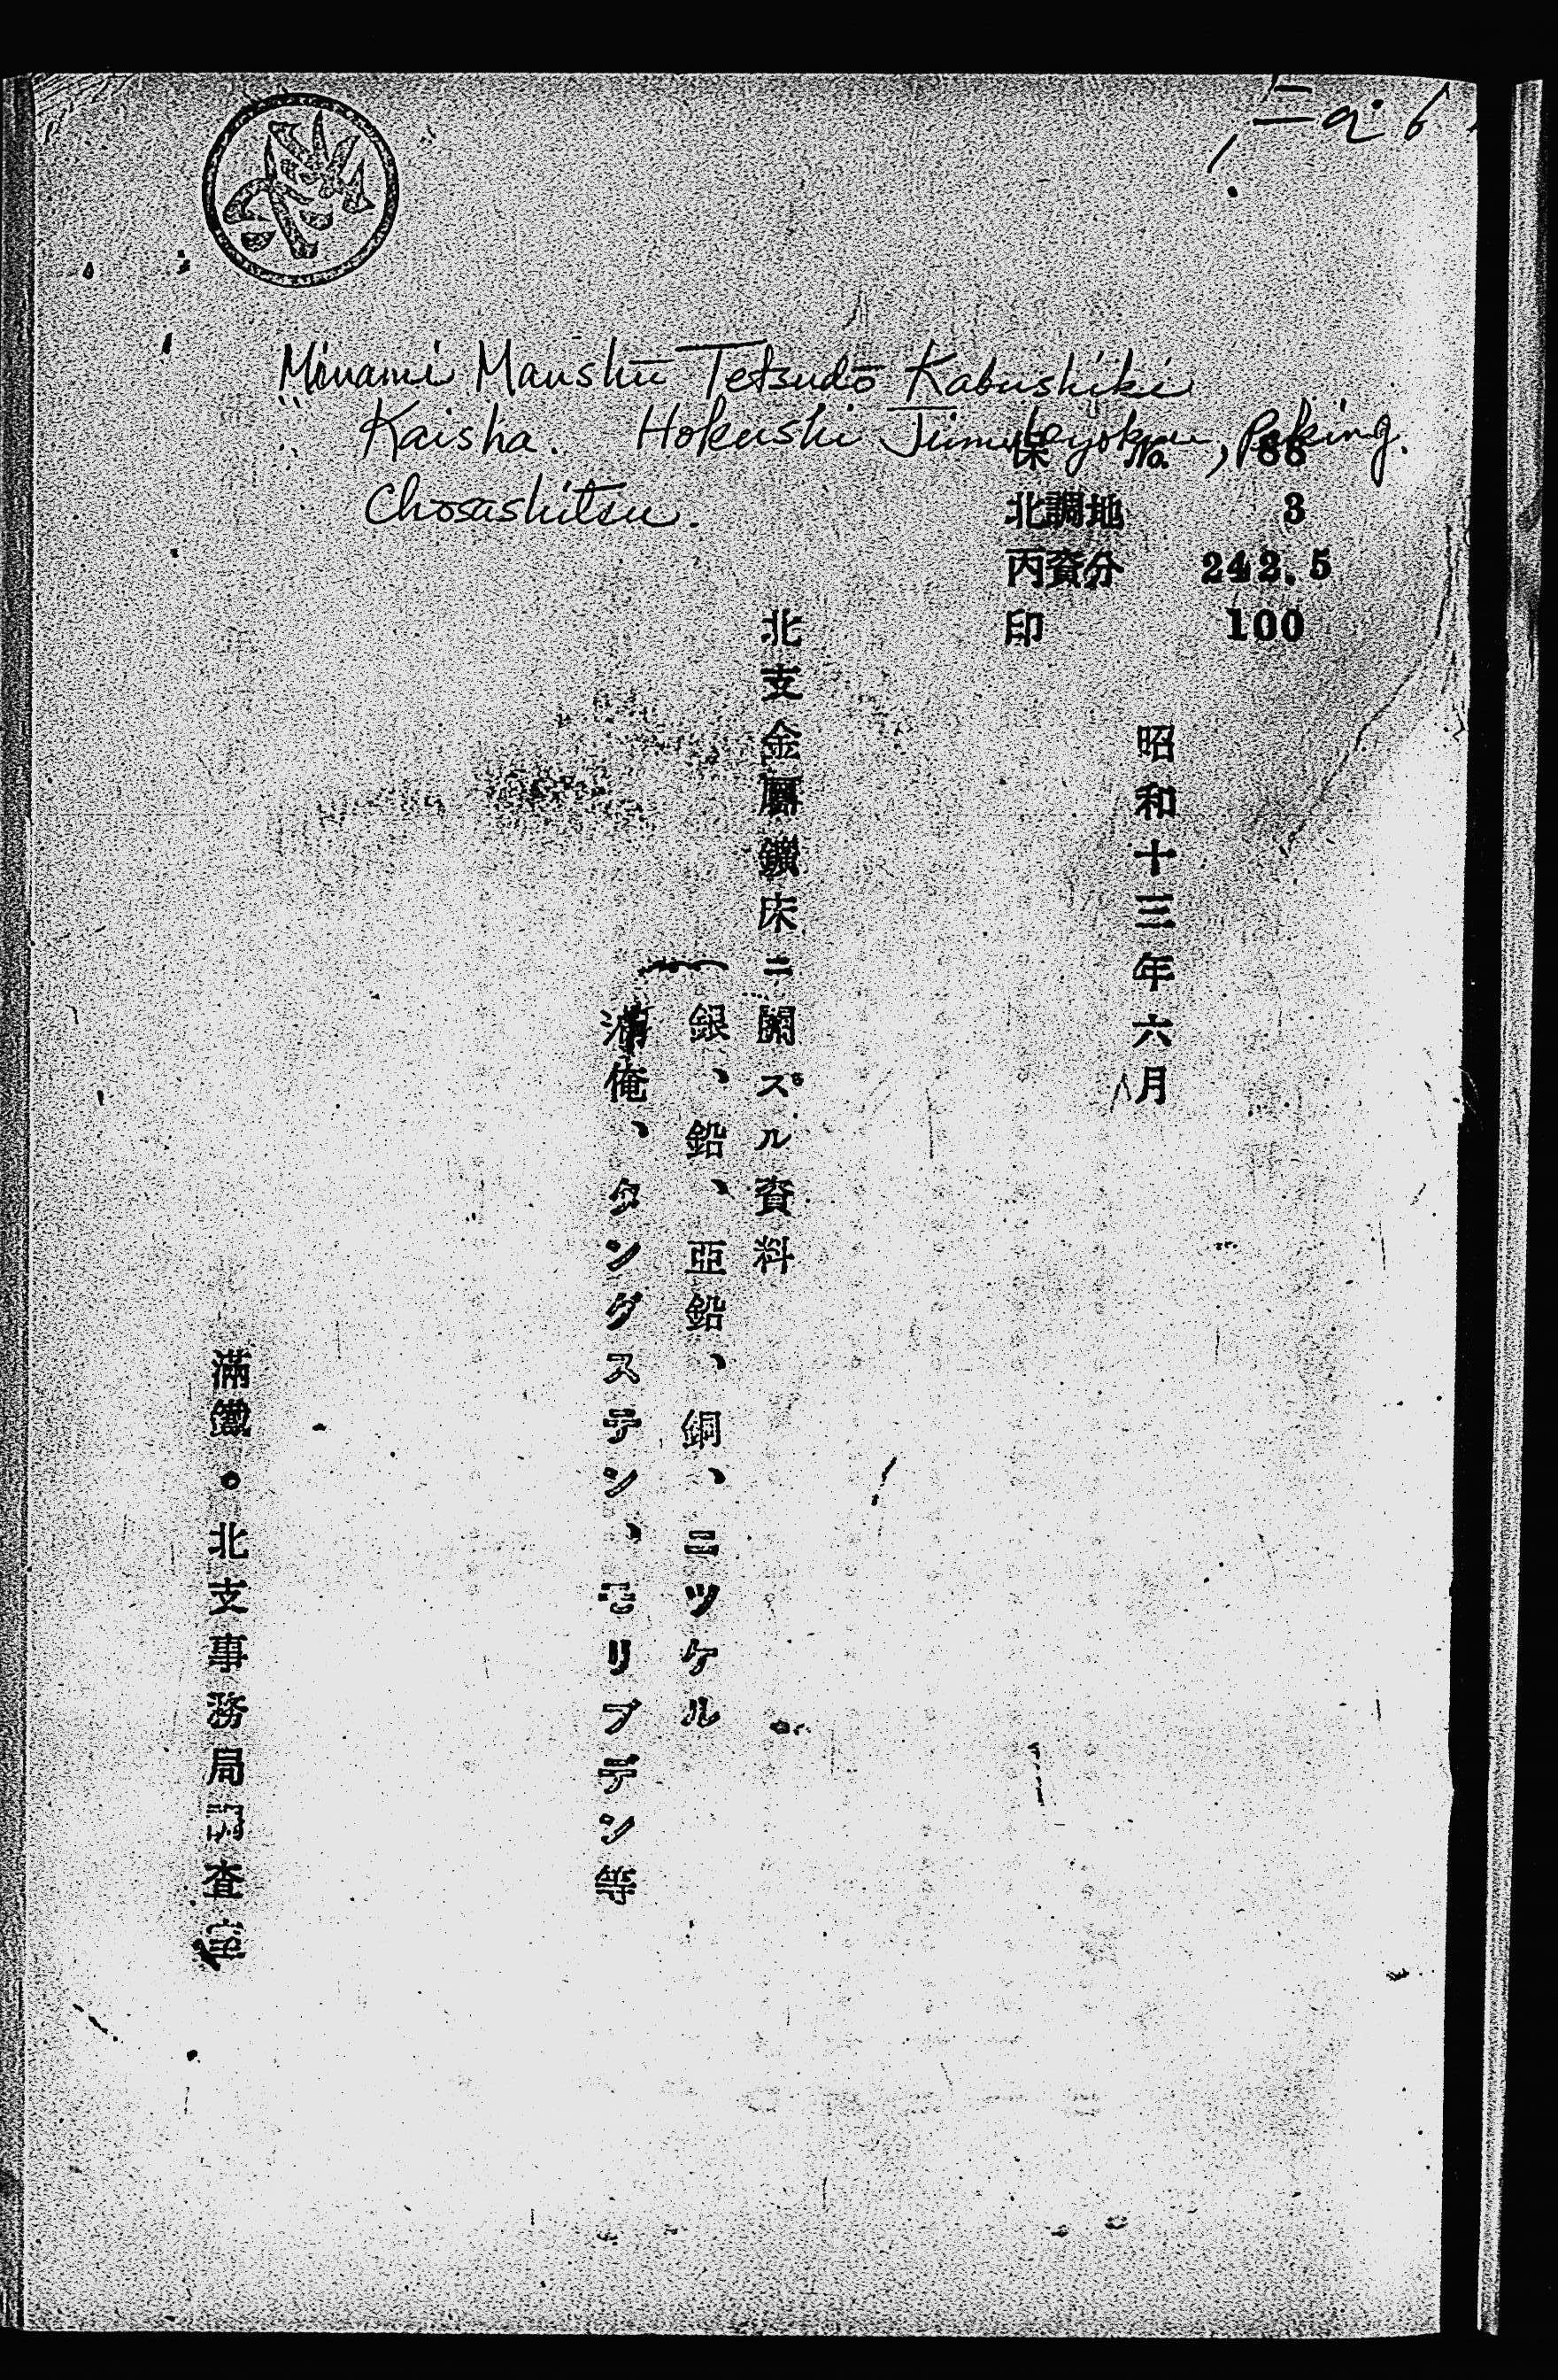 Minami Manshū Tetsudō Kabushiki
Kaisha. Hokushi Jimukyoku, Peking.
Chōsashitsu.
保 No. 88
北調地 3
丙資分 242.5
印 100
昭和十三年六月
北支金屬鑛床ニ關スル資料
銀、鉛、亞鉛、銅、ニツケル
滿俺、タングステン、モリブデン等
滿鐵・北支事務局調査室